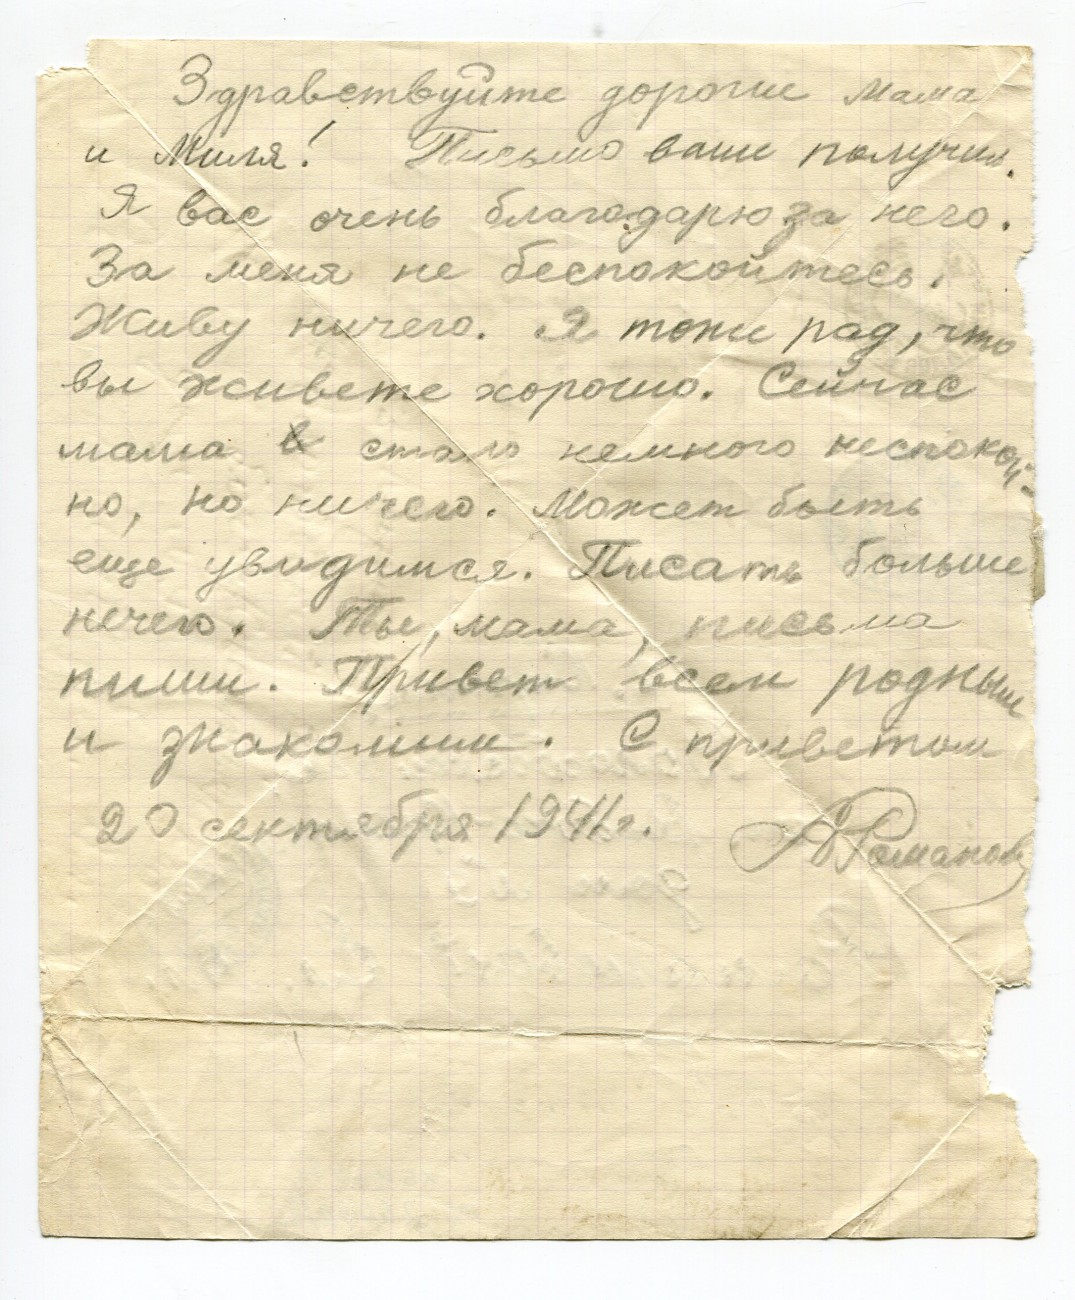 Здравствуйте дорогие мама
и Миля! Письмо ваше получил.
Я вас очень благодарю за него.
За меня не беспокойтесь.
Живу ничего. Я тоже рад, что
вы живете хорошо. Сейчас
мама стало немного неспокой-
но, но ничего. Может быть
еще увидимся. Писать больше
нечего. Ты, мама, письма
пиши. Привет всем родным
и знакомым. С приветом
20 сентября 1941 г. А Романов